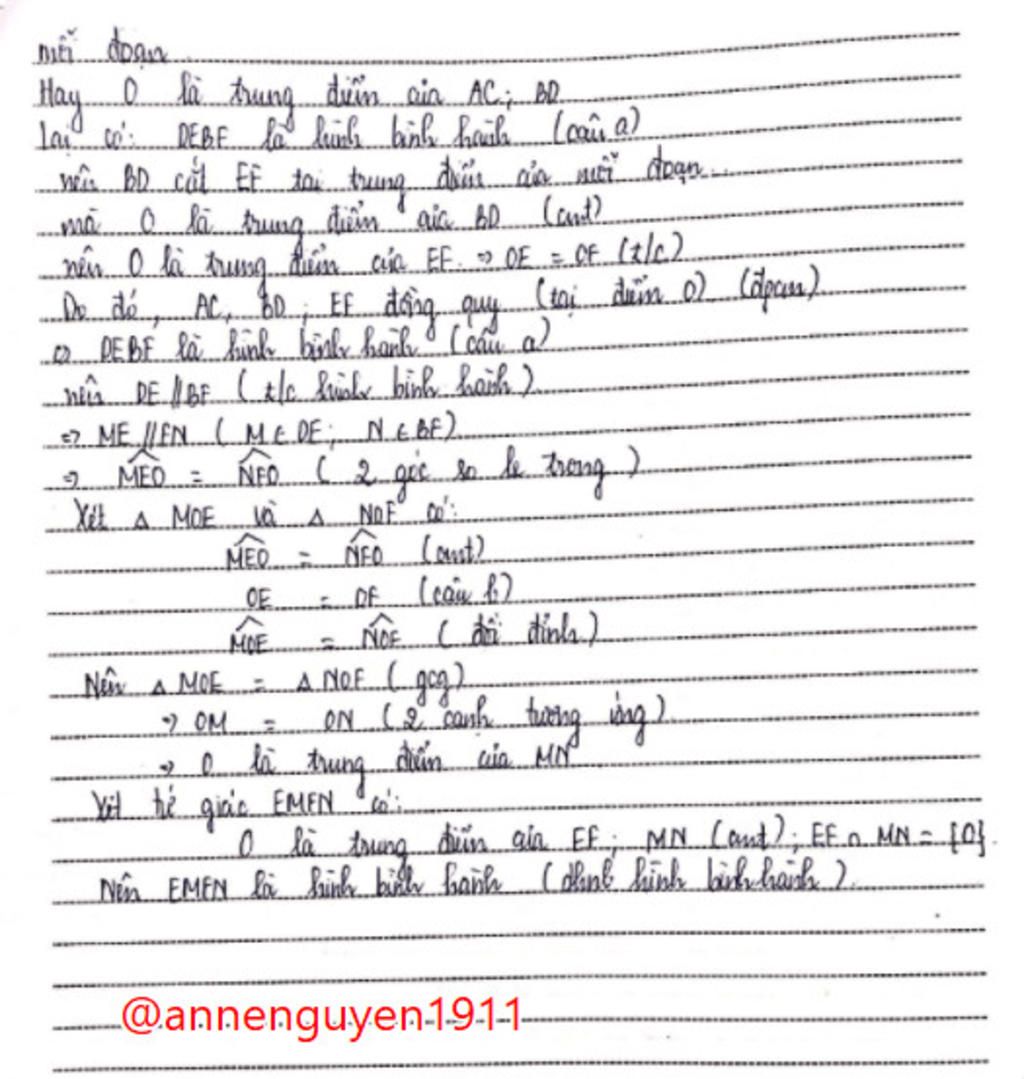 mỗi đoạn
Hay O là trung điểm của AC; BD
Lại có: DEBF là hình bình hành (câu a)
nên BD cắt EF tại trung điểm của mỗi đoạn
mà O là trung điểm của BD (cmt)
nên O là trung điểm của EF. ⇒ OE = OF (t/c)
Do đó, AC, BD; EF đồng quy (tại điểm O) (đpcm)
c) DEBF là hình bình hành (câu a)
nên DE // BF (t/c hình bình hành)
⇒ ME // FN (M ∈ DE; N ∈ BF)
⇒ \widehat{MEO} = \widehat{NFO} (2 góc so le trong)
Xét Δ MOE và Δ NOF có:
\widehat{MEO} = \widehat{NFO} (cmt)
OE = OF (câu b)
\widehat{MOE} = \widehat{NOF} (đối đỉnh)
Nên Δ MOE = Δ NOF (gcg)
⇒ OM = ON (2 cạnh tương ứng)
⇒ O là trung điểm của MN
Xét tứ giác EMFN có:
O là trung điểm của EF; MN (cmt); EF ∩ MN = {O}
Nên EMFN là hình bình hành (dhnb hình bình hành).
@annenguyen1911